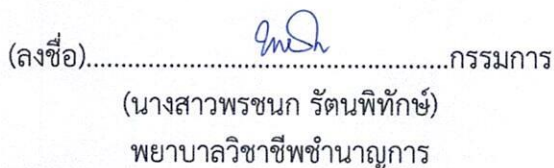 (ลงชื่อ)................................................กรรมการ
(นางสาวพรชนก รัตนพิทักษ์)
พยาบาลวิชาชีพชำนาญการ